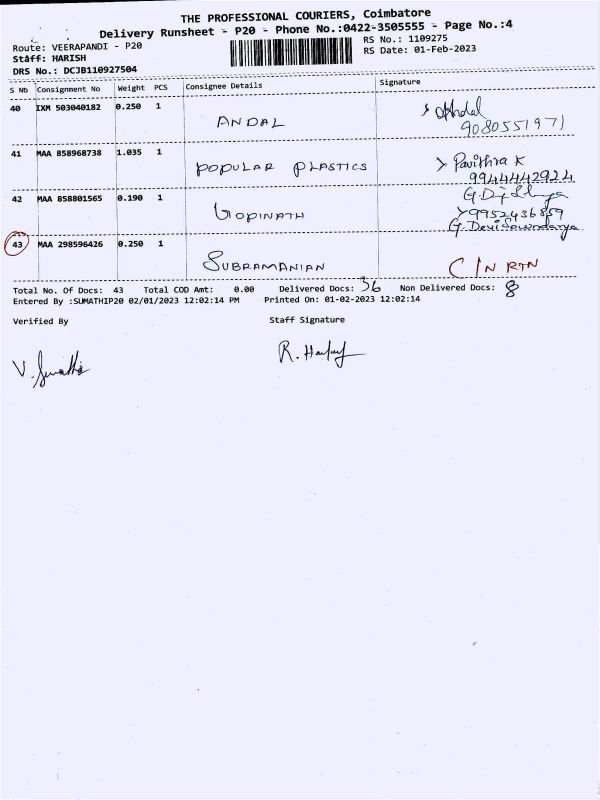 THE PROFESSIONAL COURIERS, Coimbatore
Delivery Runsheet - P20 - Phone No.:0422-3505555 - Page No.:4
Route: VEERAPANDI - P20 RS No.: 1109275
Staff: HARISH RS Date: 01-Feb-2023
DRS No.: DCJB110927504
S Nb Consignment No Weight PCS Consignee Details Signature
40 IXM 503040182 0.250 1
ANDAL
9080551971
41 MAA 858968738 1.035 1
POPULAR PLASTICS Pavithra K
9944442924
42 MAA 858801565 0.190 1
GOPINATH 9952436859
G. Devi Soundarya
43 MAA 298596426 0.250 1
SUBRAMANIAN C/N RTN
Total No. Of Docs: 43 Total COD Amt: 0.00 Delivered Docs: 36 Non Delivered Docs: 8
Entered By :SUMATHIP20 02/01/2023 12:02:14 PM Printed On: 01-02-2023 12:02:14
Verified By Staff Signature
V. Sumathi